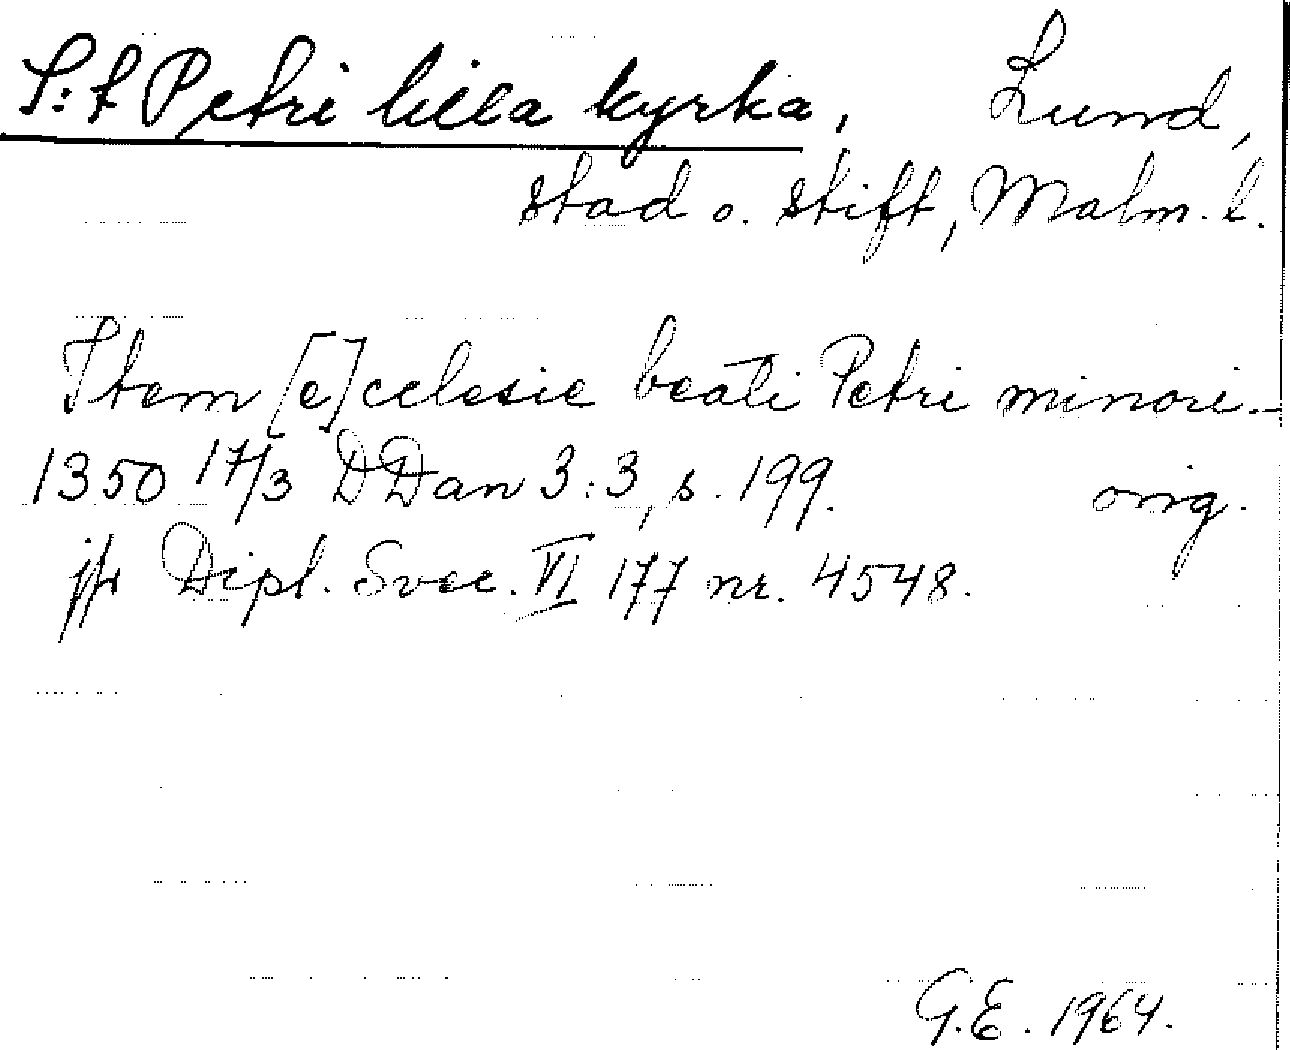 S:t Petri lilla kyrka, Lund,
stad o. stift, Malm. l.
Item [e]cclesie beati Petri minori._
1350 17/3 DDan 3:3, s. 199. orig.
jfr Dipl. Svec. VI 177 nr. 4548.
G.E. 1964.